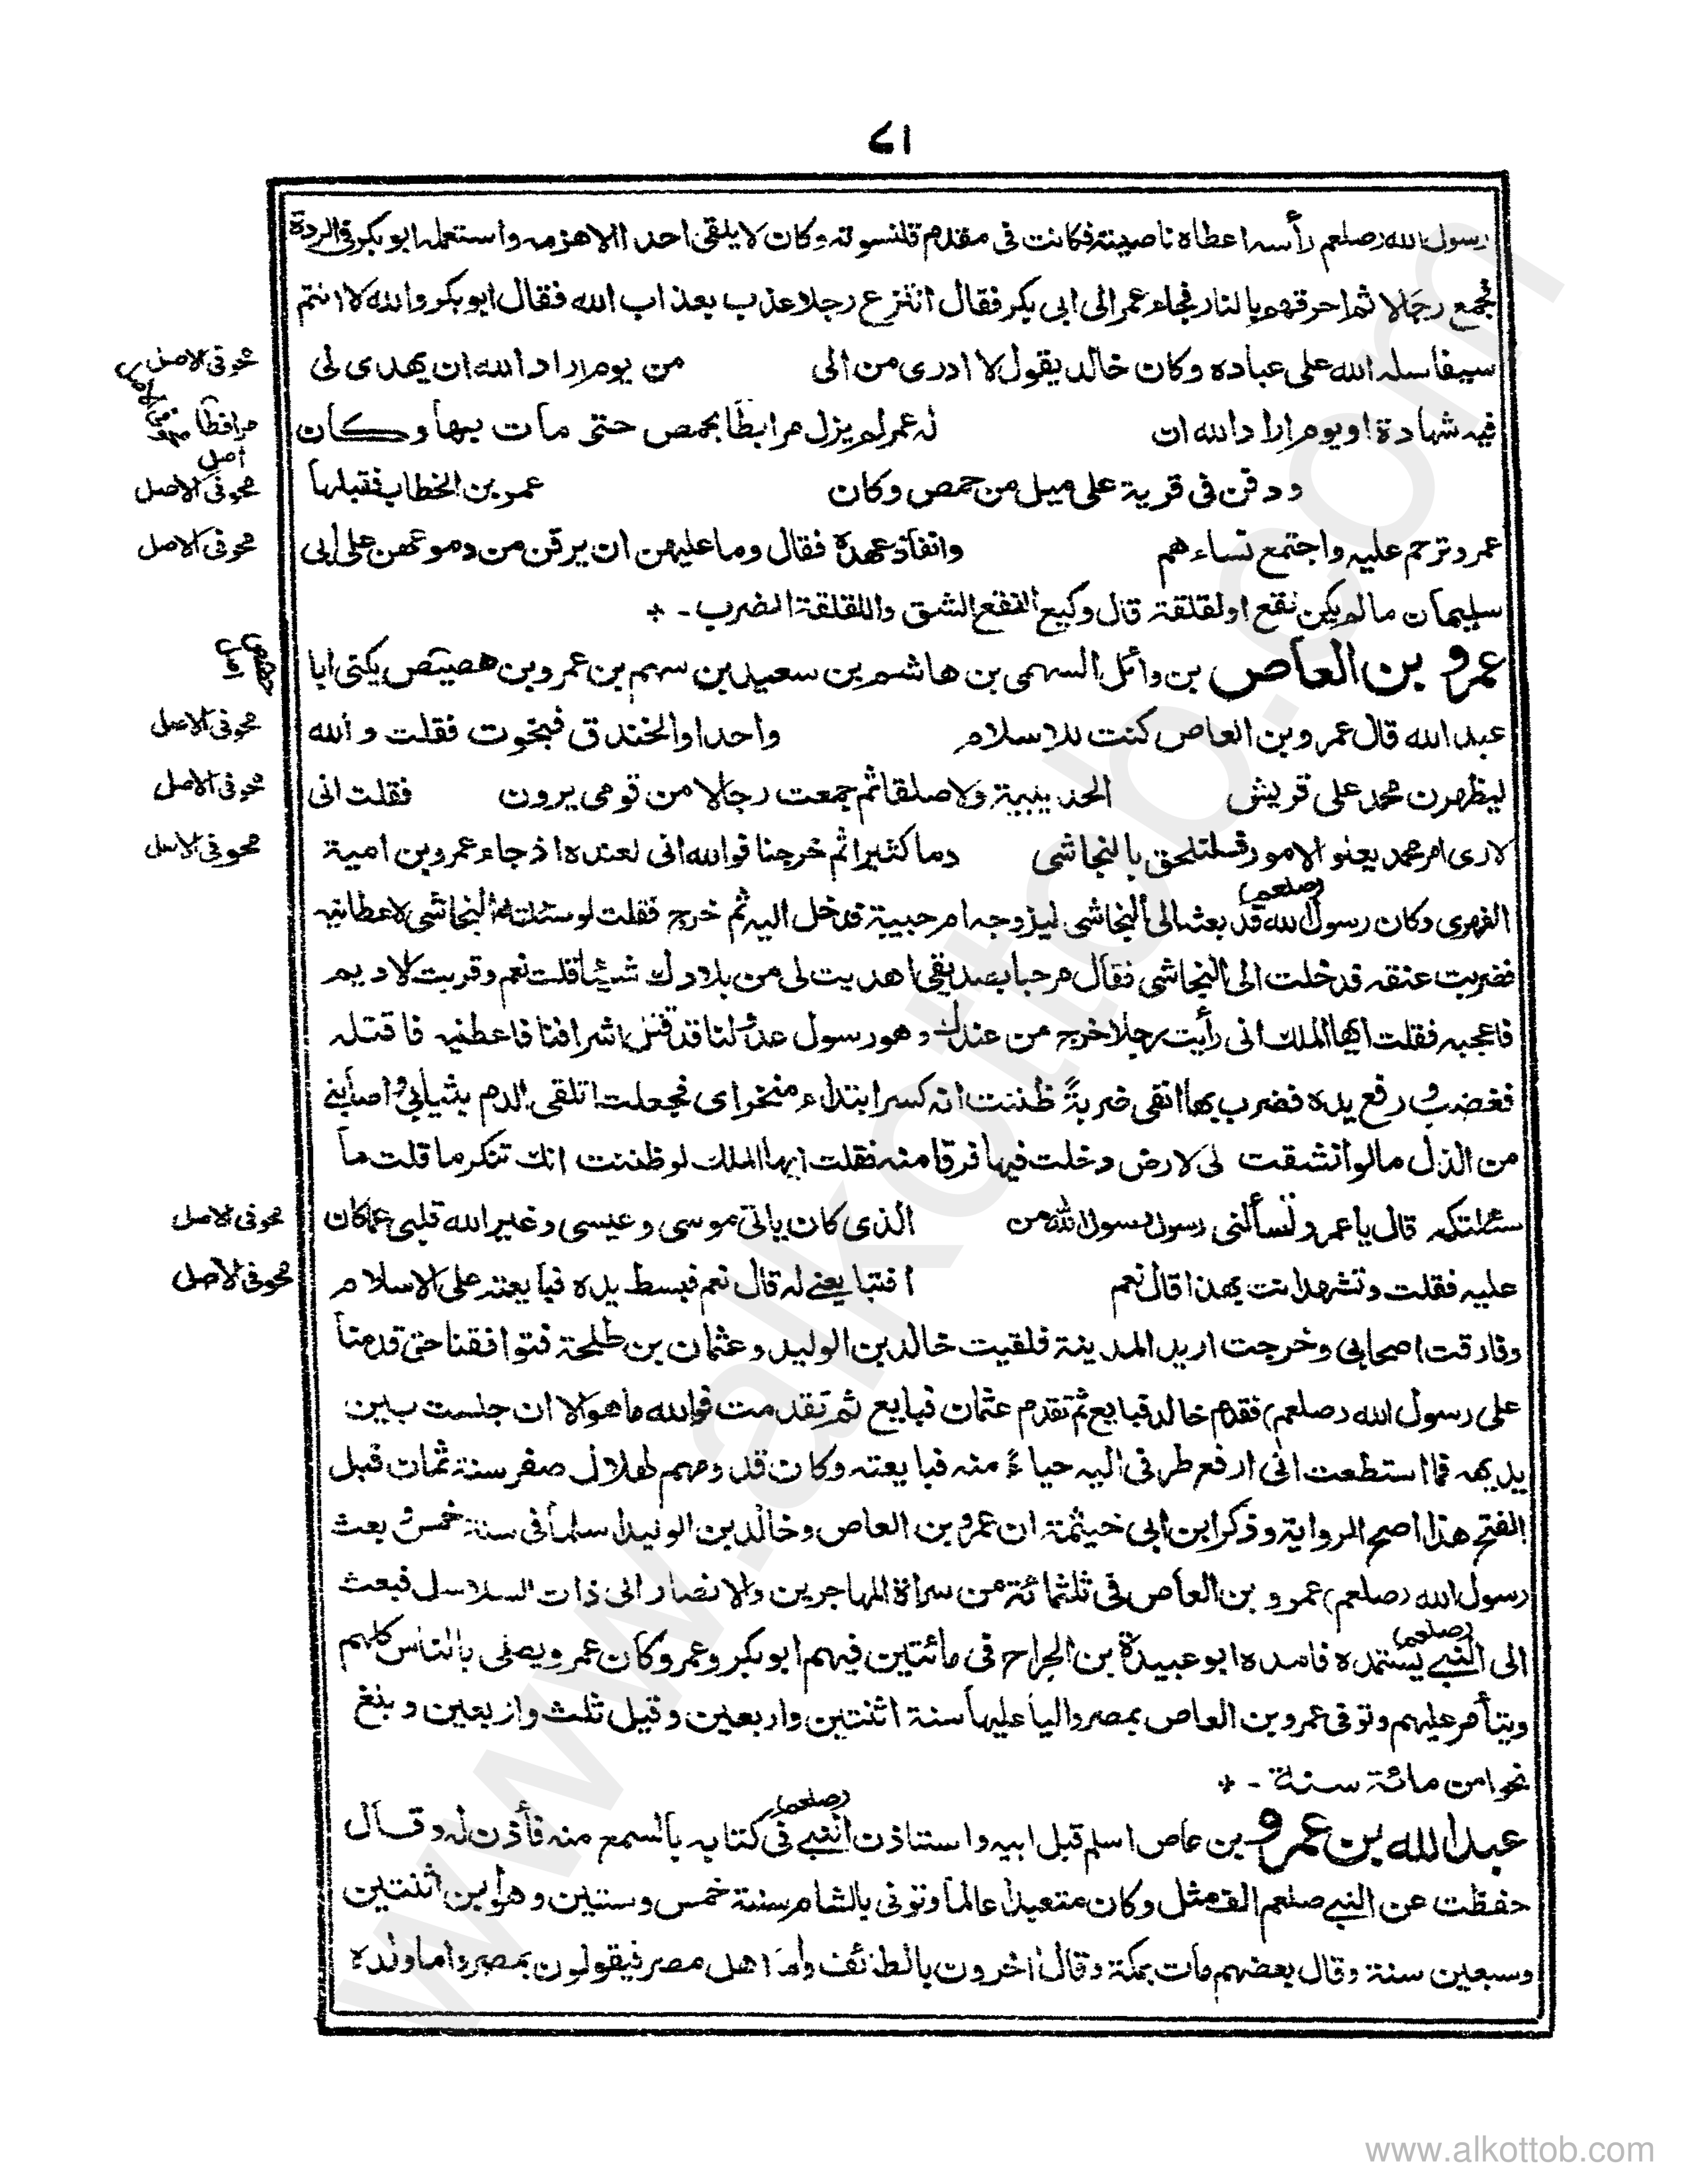 ٢١
رسول الله (صلعم رأسه اعطاه ناصيته فكانت فى مقدم قلنسوته وكان لا يلقى احد االا هزمه واستعمله ابو بكر فى الردة
فجمع رجالا ثم احرقهم بالنار فجاء عمر الى ابى بكر فقال انتزع رجلا عذب بعذاب الله فقال ابو بكر والله لا انتم
سيفا سله الله على عباده وكان خالد يقول لا ادرى من الى من يوم اراد الله ان يهدى لى محو فى الاصل
فيه شهادة او يوم اراد الله ان له عمر لم يزل مرابطا بحمص حتى مات بها وكان
ودفن فى قرية على ميل من حمص وكان عمر بن الخطاب فقبلها محو فى الاصل
عمر وترحم عليه واجتمع نساء هم وانفاذ عهده فقال وما عليهن ان يرقن من دموعهن على ابى محو فى الاصل
سليمان ما لم يكن نقع او لقلقة قال وكيع النقع الشق واللقلقة الضرب - *
عمرو بن العاص بن وائل السهمى بن هاشم بن سعيد بن سهم بن عمرو بن هصيص يكنى ابا
عبد الله قال عمرو بن العاص كنت للاسلام واحدا والخندق فنجوت فقلت والله محو فى الاصل
ليظهرن محمد على قريش الحديبية ولا صلقا ثم جمعت رجالا من قومى يرون فقلت انى محو فى الاصل
لارى امر محمد يعنو الامور فلنلحق بالنجاشى دما كثيرا ثم خرجنا فوالله انى لعنده اذ جاء عمرو بن امية محو فى الاصل
الفهرى وكان رسول الله (صلعم) قد بعثه الى النجاشى ليزوجه ام حبيبة فدخل اليه ثم خرج فقلت لو سئلت النجاشى لاعطانيه
فضربت عنقه فدخلت الى النجاشى فقال مرحبا بصديقى اهديت لى من بلادك شيئا قلت نعم وقربت لاديم
فاعجبه فقلت ايها الملك انى رأيت رجلا خرج من عندك وهو رسول عدو لنا قد قتل اشرافنا فاعطنيه فاقتله
فغضب و رفع يده فضرب بها انفى ضربة ظننت انه كسر ابتداء منخراى فجعلت اتلقى الدم بثيابى و اصابنى
من الذل ما لو انشقت لى الارض دخلت فيها فرقا منه فقلت ايها الملك لو ظننت انك تنكر ما قلت ما
سئلتكه قال يا عمرو تسألنى رسول رسول الله من الذى كان ياتى موسى وعيسى وغير الله قلبى عما كان محو فى الاصل
عليه فقلت وتشهد انت بهذا قال نعم افتبا يعنى له قال نعم فبسط يده فبايعته على الاسلام محو فى الاصل
وفارقت اصحابى وخرجت اريد المدينة فلقيت خالد بن الوليد وعثمان بن طلحة فتوافقنا حتى قدمنا
على رسول الله (صلعم) فقدم خالد فبايع ثم تقدم عثمان فبايع ثم تقدمت فوالله ما هو الا ان جلست بين
يديه فما استطعت انى ارفع طرفى اليه حياء منه فبايعته وكان قدومهم لهلال صفر سنة ثمان قبل
الفتح هذا اصح الرواية وذكر ابن ابى خيثمة ان عمرو بن العاص وخالد بن الوليد اسلما فى سنة خمس و بعث
رسول الله (صلعم) عمرو بن العاص فى ثلثمائة من سراة المهاجرين والانصار الى ذات السلاسل فبعث
الى النبى (صلعم) يستمده فامده ابو عبيدة بن الجراح فى مائتين فيهم ابو بكر وعمر وكان عمرو يصلى بالناس كلهم
ويتأمر عليهم وتوفى عمرو بن العاص بمصر واليا عليها سنة اثنتين واربعين وقيل ثلث واربعين وبلغ
نحوا من مائة سنة - *
عبد الله بن عمرو بن عاص اسلم قبل ابيه واستاذن النبى (صلعم) فى كتابه بالسمع منه فأذن له وقال
حفظت عن النبى صلعم الف مثل وكان متعبدا عالما وتوفى بالشام سنة خمس وستين وهو ابن اثنتين
وسبعين سنة وقال بعضهم مات بمكة وقال اخرون بالطائف واما اهل مصر فيقولون بمصر واما ولده
www.alkottob.com
www.alkottob.com